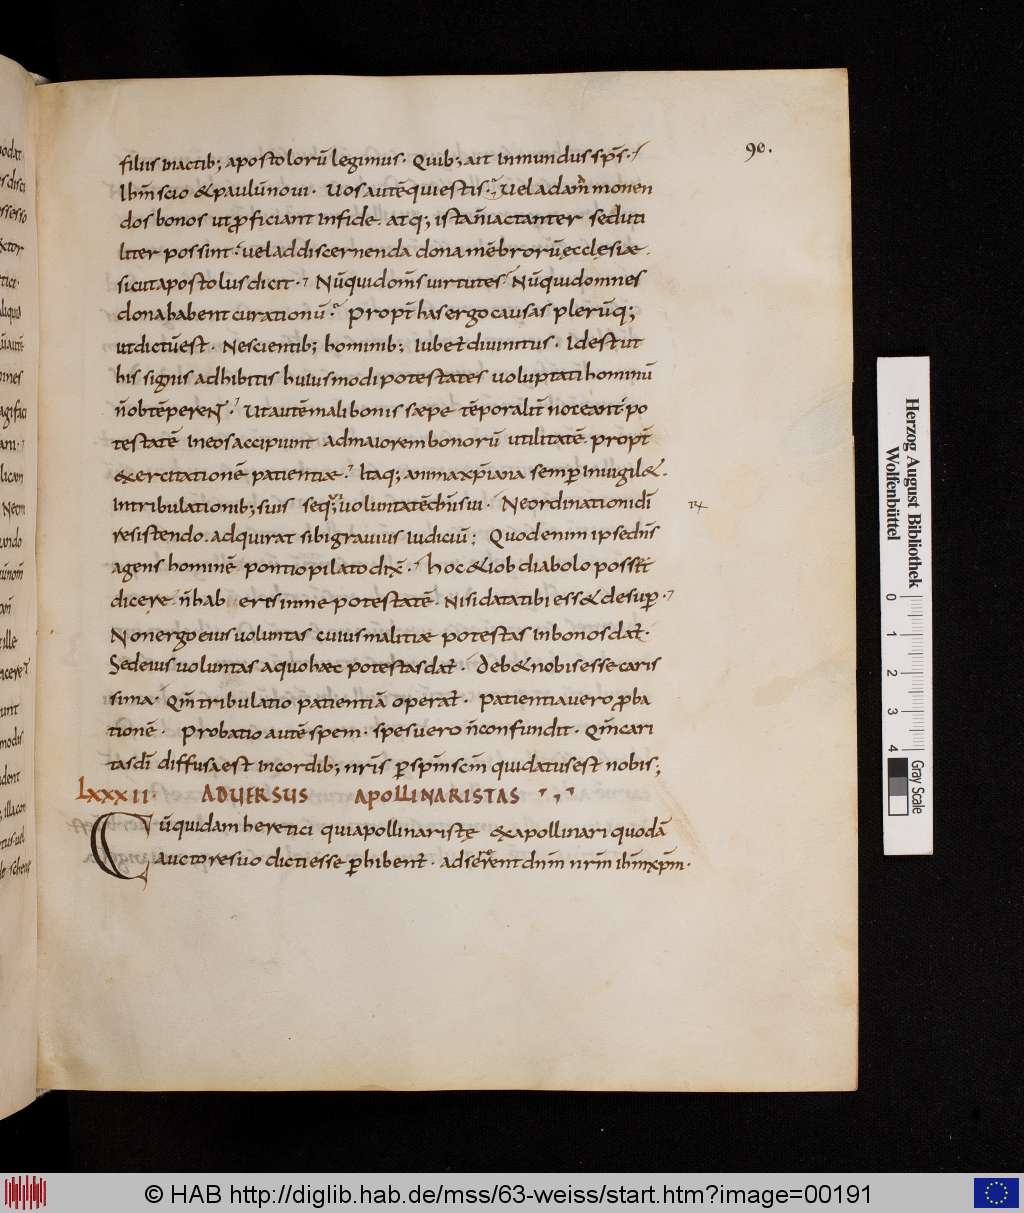 90.
filius inactib; apostolorū legimus. Quib; ait Inmundus sps̄.
Ihm̄ scio & paulū noui. Uos autē qui estis. Uel ad am̄monen
dos bonos ut ꝓficiant Infide. atq; istān iactanter seduti
liter possint. uel ad discernenda dona mēbrorū ecclesiae.
sicut apostolus dicit. Nūquid om̄s uirtutes. Nūquid omnes
dona habent curationū. Propt̄ has ergo causas plerūq;
ut dictū est. Nescientib; hominib; Iubet diuinitus. Id est ut
his signis adhibitis huiusmodi potestates uoluptati hominū
n̄ obtēperent. Ut autē mali bonis saepe tēporalit̄ noceant. po
testatē In eos accipiunt ad maiorem bonorū utilitatē propt̄
exercitationē patientiae. Itaq; anima xp̄iana semp̄ Inuigil&.
In tribulationib; suis sequi uoluntatē dn̄i sui. Ne ordinationi dī
resistendo. adquirat sibi grauius Iudiciū; Quod enim ipse dn̄s
agens hominē pontio pilato dix̄. hoc & iob diabolo poss&
dicere n̄ hab eres in me potestatē. Nisi data tibi ess& desuꝑ.
Non ergo eius uoluntas cuius malitiae potestas In bonos dat̄.
Sed eius uoluntas a quo haec potestas dat̄. deb& nobis esse caris
sima. Qm̄ tribulatio patientiā operat̄. Patientia uero ꝓba
tionē. Probatio autē spem. spes uero n̄ confundit. Qm̄ cari
tas dī diffusa est In cordib; nr̄is ꝑ spm̄ scm̄ qui datus est nobis;
LXXXII. ADUERSUS APOLLINARISTAS
Cū quidam heretici qui apollinaristę ex apollinari quodā
auctore suo dicti esse ꝑhibent̄. adserent dn̄m nr̄m ihm̄ xpm̄.
Herzog August Bibliothek
Wolfenbüttel
0 1 2 3 4
Gray Scale
© HAB http://diglib.hab.de/mss/63-weiss/start.htm?image=00191